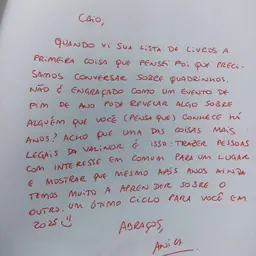 Caio,
QUANDO VI SUA LISTA DE LIVROS A
PRIMEIRA COISA QUE PENSEI FOI QUE PRECI-
SAMOS CONVERSAR SOBRE QUADRINHOS.
NÃO É ENGRAÇADO COMO UM EVENTO DE
FIM DE ANO PODE REVELAR ALGO SOBRE
ALGUÉM QUE VOCÊ (PENSA QUE) CONHECE HÁ
ANOS? ACHO QUE UMA DAS COISAS MAIS
LEGAIS DA VALINOR É ISSO: TRAZER PESSOAS
COM INTERESSE EM COMUM PARA UM LUGAR
E MOSTRAR QUE MESMO APÓS ANOS AINDA
TEMOS MUITO A APRENDER SOBRE O
OUTRO. UM ÓTIMO CICLO PARA VOCÊ EM
ABRAÇOS,